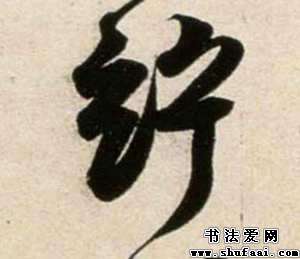 舒
书法爱网
www.shufaai.com